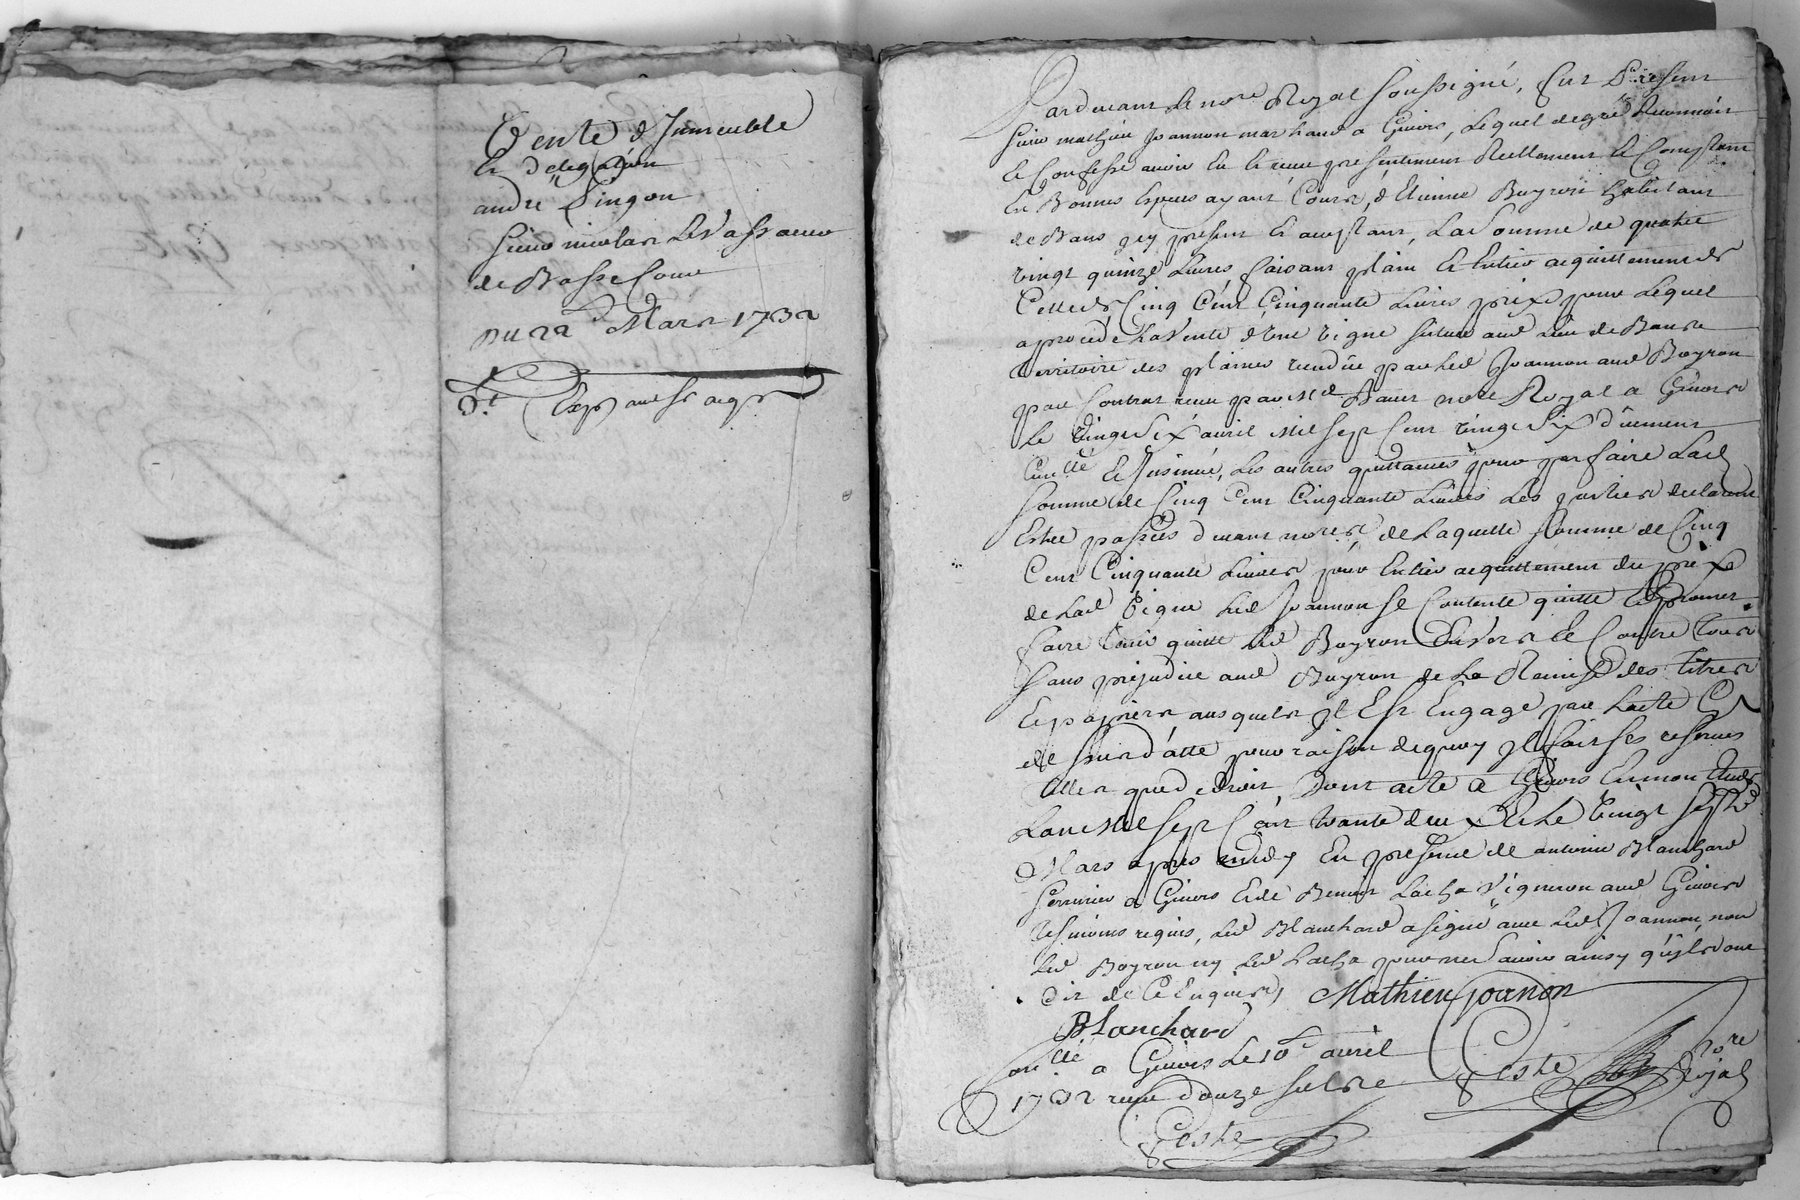 Vente d'Immeuble
Et Delegation
andre Pingon
Sieur nicolas LeVasseur
de Bassecour
Du 22e Mars 1732
Expe
Pardevant Le nore Royal soussigné, fut Present
sieur mathieu Joannon marchand a Givors, Lequel de gré Reconnoit
Et Confesse avoir Eu Et receu presentement Reellement Et Comptant
En Bonnes Especes ayant Cours, d'Etienne Boyron habitant
de Bans icy present Et aceptant, La somme de quatre
vingt quinze Livres faisant plain Et Entier acquittement de
Celle de Cinq Cent Cinquante Livres prix pour Lequel
a procedé La Vente d'une vigne situee aud Lieu de Bans
territoire des plaines vendüe par Led Joannon aud Boyron
par Contrat receu par Me nore Royal a Givors
Le vingt Six avril Mil sept Cent vingt Six düement
Conllé Et Insinué, Les autres quittances pour parfaire Lad
somme de Cinq Cent Cinquante Livres Les parties declarent
Estre passées devant nores de Laquelle somme de Cinq
Cent Cinquante Livres pour Entier acquittement du prix
de Lad vigne Led Joannon se Contente quitte Et promet
faire tenir quitte Led Boyron Envers Et Contre tous
sans prejudice aud Boyron de La Remise des titres
Et papiers ausquels il Est Engagé par Lacte Cy
dessus datté pour raison dequoy il fait ses reserves
telles que de droit, Dont acte a Givors En mon Etude
Lan Mil sept Cent trante deux Et Le vingt sept
Mars apres midy En presence de antoine Blanchard
serrurier a Givors Et de Benoit Lacha vigneron aud Givors
tesmoins requis, Led Blanchard a signé avec Led Joannon, non
Led Boyron ny Led Lacha pour ne sçavoir ainsy quils ont
dit de Ce Enquis,
Mathieu joanon
Blanchard
conllé a Givors Le 10e avril
1732 receu douze sols
Coste nore Royal
Coste